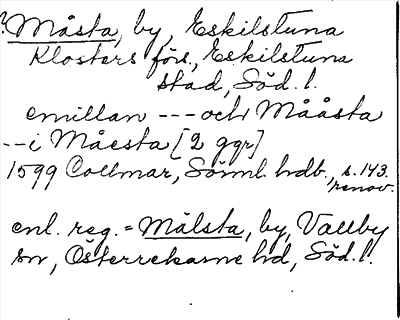 ?Måsta, by, Eskilstuna
Klosters förs., Eskilstuna
stad, Söd. l.
emillan --- och Måästa
--i Måesta [2 ggr]
1599 Collmar, Sörml. hdb., s. 143.
renov.
enl. reg. = Målsta, by, Vallby
sn, Österrekarne hd, Söd. l.